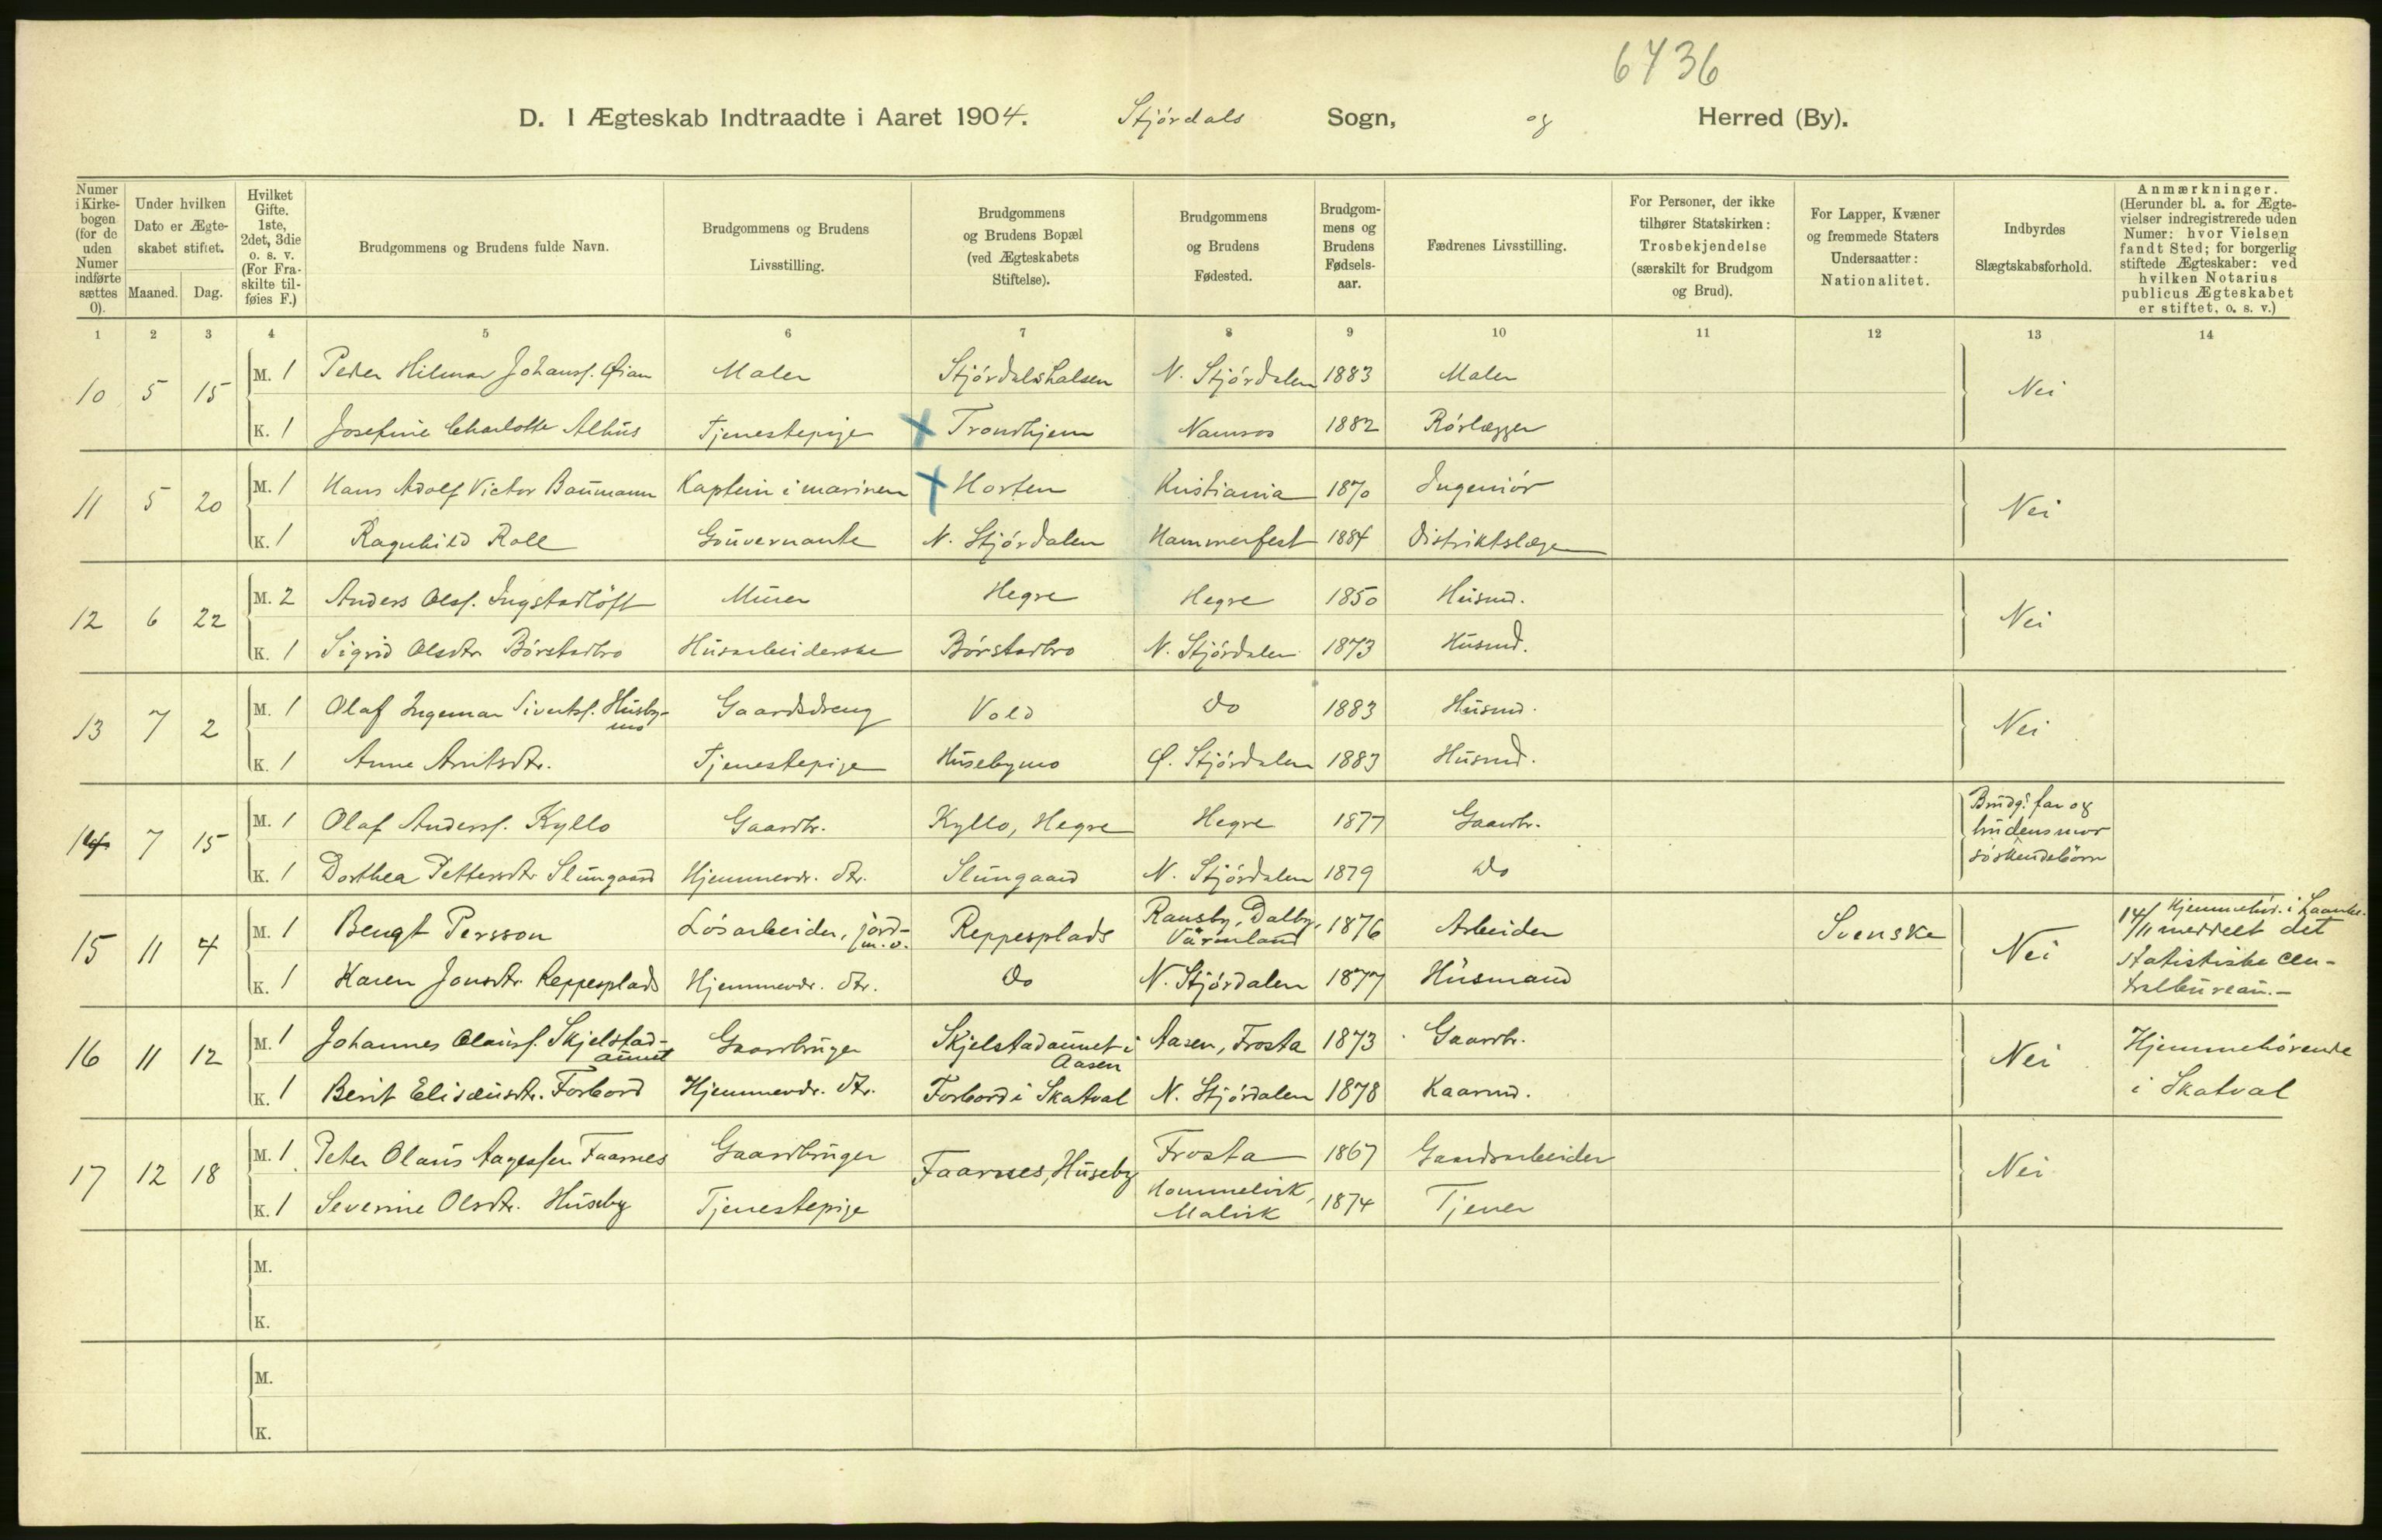 6436
D. I Ægteskab Indtraadte i Aaret 1904. Stjórdals Sogn, og Herred (By).
Numer i Kirkebogen (for de uden Numer indførte sættes 0).
Under hvilken Dato er Ægteskabet stiftet.
Maaned. Dag.
Hvilket Gifte. 1ste, 2det, 3die o. s. v. (For Fraskilte tilføies F.)
Brudgommens og Brudens fulde Navn.
Brudgommens og Brudens Livsstilling.
Brudgommens og Brudens Bopæl (ved Ægteskabets Stiftelse).
Brudgommens og Brudens Fødested.
Brudgommens og Brudens Fødselsaar.
Fædrenes Livsstilling.
For Personer, der ikke tilhører Statskirken: Trosbekjendelse (særskilt for Brudgom og Brud).
For Lapper, Kvæner og fremmede Staters Undersaatter: Nationalitet.
Indbyrdes Slægtskabsforhold.
Anmærkninger. (Herunder bl. a. for Ægtevielser indregistrerede uden Numer: hvor Vielsen fandt Sted; for borgerlig stiftede Ægteskaber: ved hvilken Notarius publicus Ægteskabet er stiftet, o. s. v.)
1 2 3 4 5 6 7 8 9 10 11 12 13 14
10 5 15 M. 1 Peder Hilmar Johansf. Øian Maler Stjórdalshalsen N. Stjórdalen 1883 Maler Nei
K. 1 Josefine Charlotte Alhus Tjenestepige Trondhjem Namsos 1882 Rórlægger
11 5 20 M. 1 Hans Adolf Victor Baumann Kaptein i marinen Horten Kristiania 1870 Ingeniór Nei
K. 1 Ragnhild Roll Guvernante N. Stjórdalen Hammerfest 1884 Distriktslæge
12 6 22 M. 2 Anders Olsf. Ingstadlöft Murer Hegre Hegre 1850 Husmd. Nei
K. 1 Sigrid Olsdtr. Bórstadbro Husarbeiderske Bórstadbro N. Stjórdalen 1873 Husmd.
13 7 2 M. 1 Olaf Ingemar Sivertsf. Husbymo Gaardsdreng Vold Do 1883 Husmd. Nei
K. 1 Anne Arntsdtr. Tjenestepige Husebymo Ø. Stjórdalen 1883 Husmd.
14 7 15 M. 1 Olaf Andersf. Kyllo Gaardbr. Kyllo, Hegre Hegre 1877 Gaardbr. Brudg.s far og brudens mor sóskendebórn
K. 1 Dorthea Pettersdtr. Slungaard Hjemmevdr. dtr. Slungaard N. Stjórdalen 1879 Do
15 11 4 M. 1 Bengt Persson Lósarbeider, jord- m. v. Reppesplads Ransby, Dalby, Värmland 1876 Arbeider Svenske Nei Hjemmehór. i Laanke. 14/11 meddelt det statistiske centralbureau.-
K. 1 Karen Jonsdtr. Reppesplads Hjemmevdr. dtr. Do N. Stjórdalen 1877 Husmand
16 11 12 M. 1 Johannes Olausf. Skjelstadaunet Gaardbruger Skjelstadaunet i Aasen Aasen, Frosta 1873 Gaardbr. Nei Hjemmehórende i Skatval
K. 1 Berit Elisæusdtr. Forbord Hjemmevdr. dtr. Forbord i Skatval N. Stjórdalen 1878 Kaarmd.
17 12 18 M. 1 Peter Olaus Aagessen Faarnes Gaardbruger Faarnes, Huseby Frosta 1867 Gaardsarbeider Nei
K. 1 Severine Olsdtr. Huseby Tjenestepige Hommelvik, Malvik 1874 Tjener
M.
K.
M.
K.